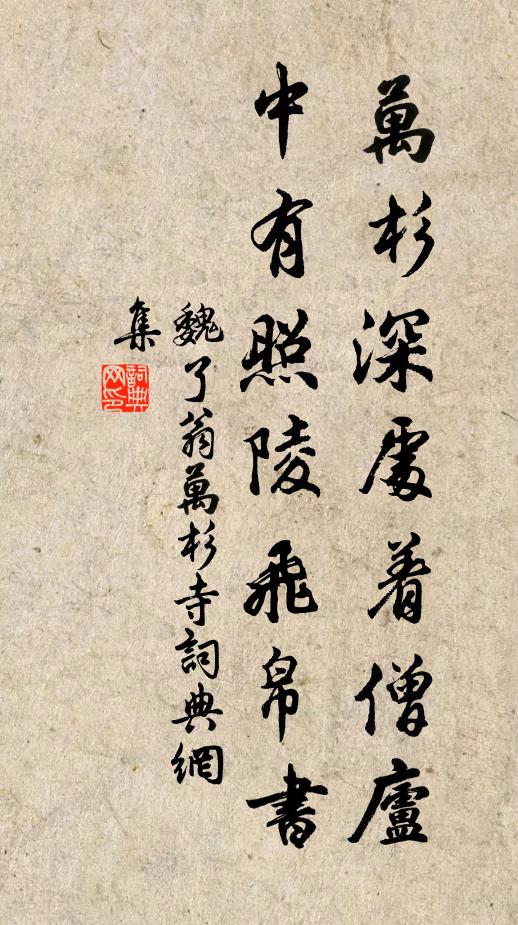 萬杉深處着僧廬
中有照陵飛帛書
魏了翁萬杉寺詞典網
集
詞典
网印